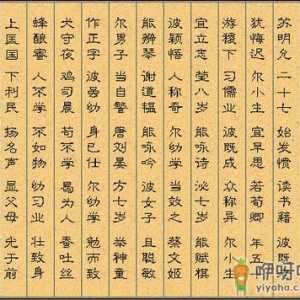 苏明允 二十七 始发愤 读书籍 彼既
犹悔迟 尔小生 宜早思 若荀卿 年五
游稷下 习儒业 彼既成 众称异 尔小生
宜立志 莹八岁 能咏诗 泌七岁 能赋棋
彼颖悟 人称奇 尔幼学 当效之 蔡文姬
能辨琴 谢道韫 能咏吟 彼女子 且聪敏
尔男子 当自警 唐刘晏 方七岁 举神童
作正字 彼虽幼 身已仕 尔幼学 勉而致
犬守夜 鸡司晨 苟不学 曷为人 蚕吐丝
蜂酿蜜 人不学 不如物 幼习业 壮致身
上匡国 下利民 扬名声 显父母 光于前
咿呀呀
yiyoha.com